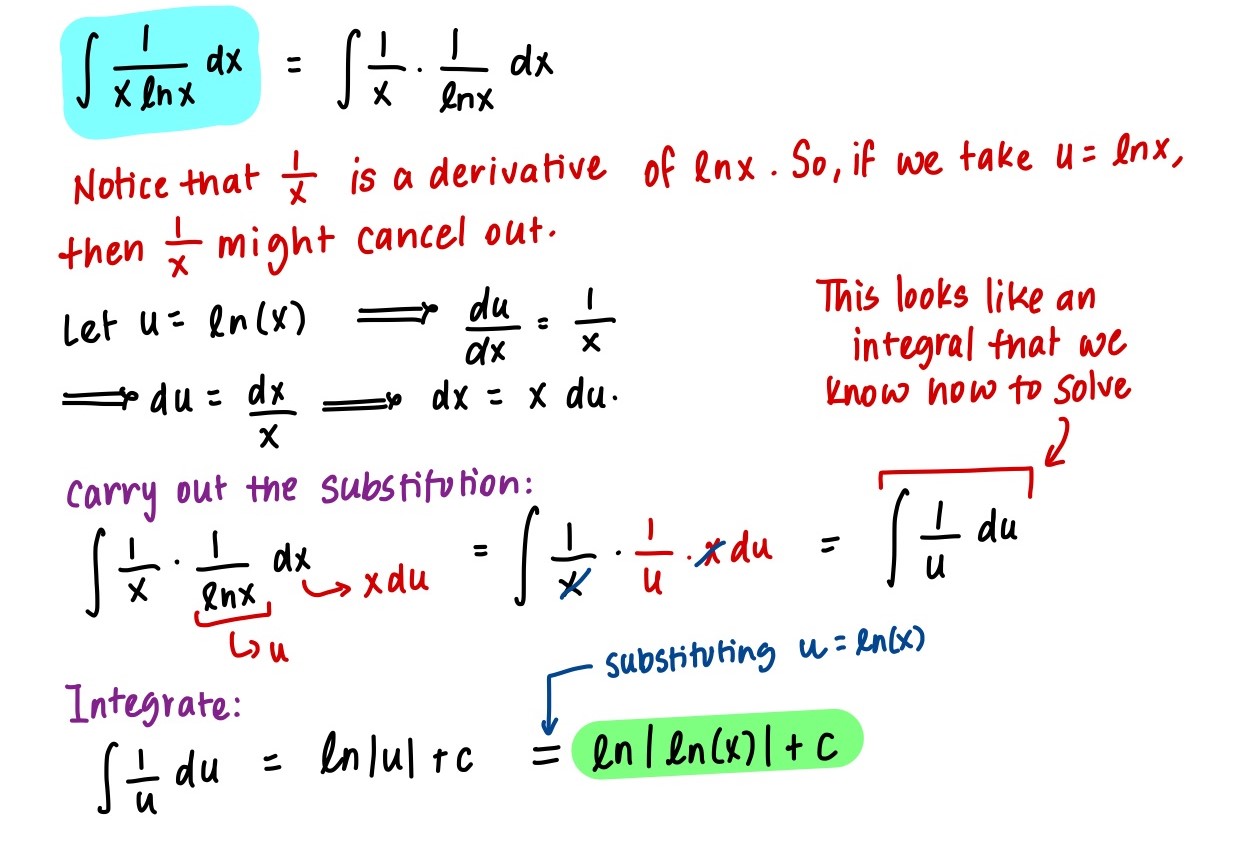 ∫ 1/(x ln x) dx = ∫ 1/x · 1/(ln x) dx
Notice that 1/x is a derivative of ln x. So, if we take u = ln x,
then 1/x might cancel out.
Let u = ln(x) ⟹ du/dx = 1/x
⟹ du = dx/x ⟹ dx = x du.
This looks like an
integral that we
know how to solve
Carry out the substitution:
∫ 1/x · 1/(ln x) dx = ∫ 1/x · 1/u · x du = ∫ 1/u du
↳ x du
↳ u
Integrate:
substituting u = ln(x)
∫ 1/u du = ln|u| + c = ln|ln(x)| + c